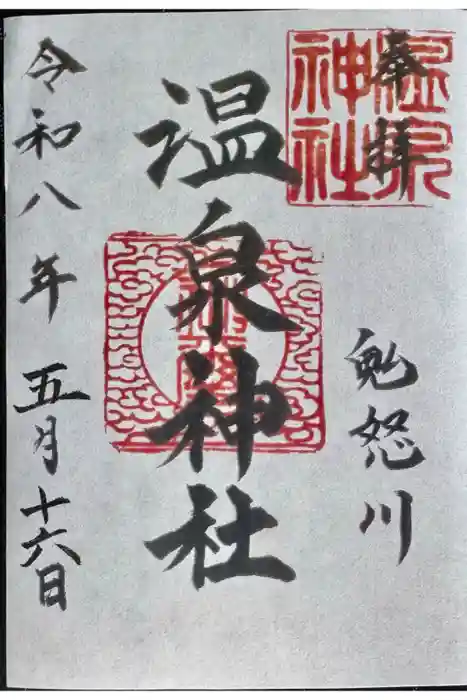 奉拝
温泉神社
鬼怒川
温泉神社
令和八年五月十六日